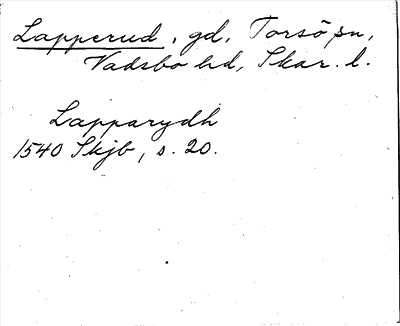 Lapperud, gd, Torsö sn,
Vadsbo hd, Skar. l.
Lapparydh
1540 Skjb, s. 20.